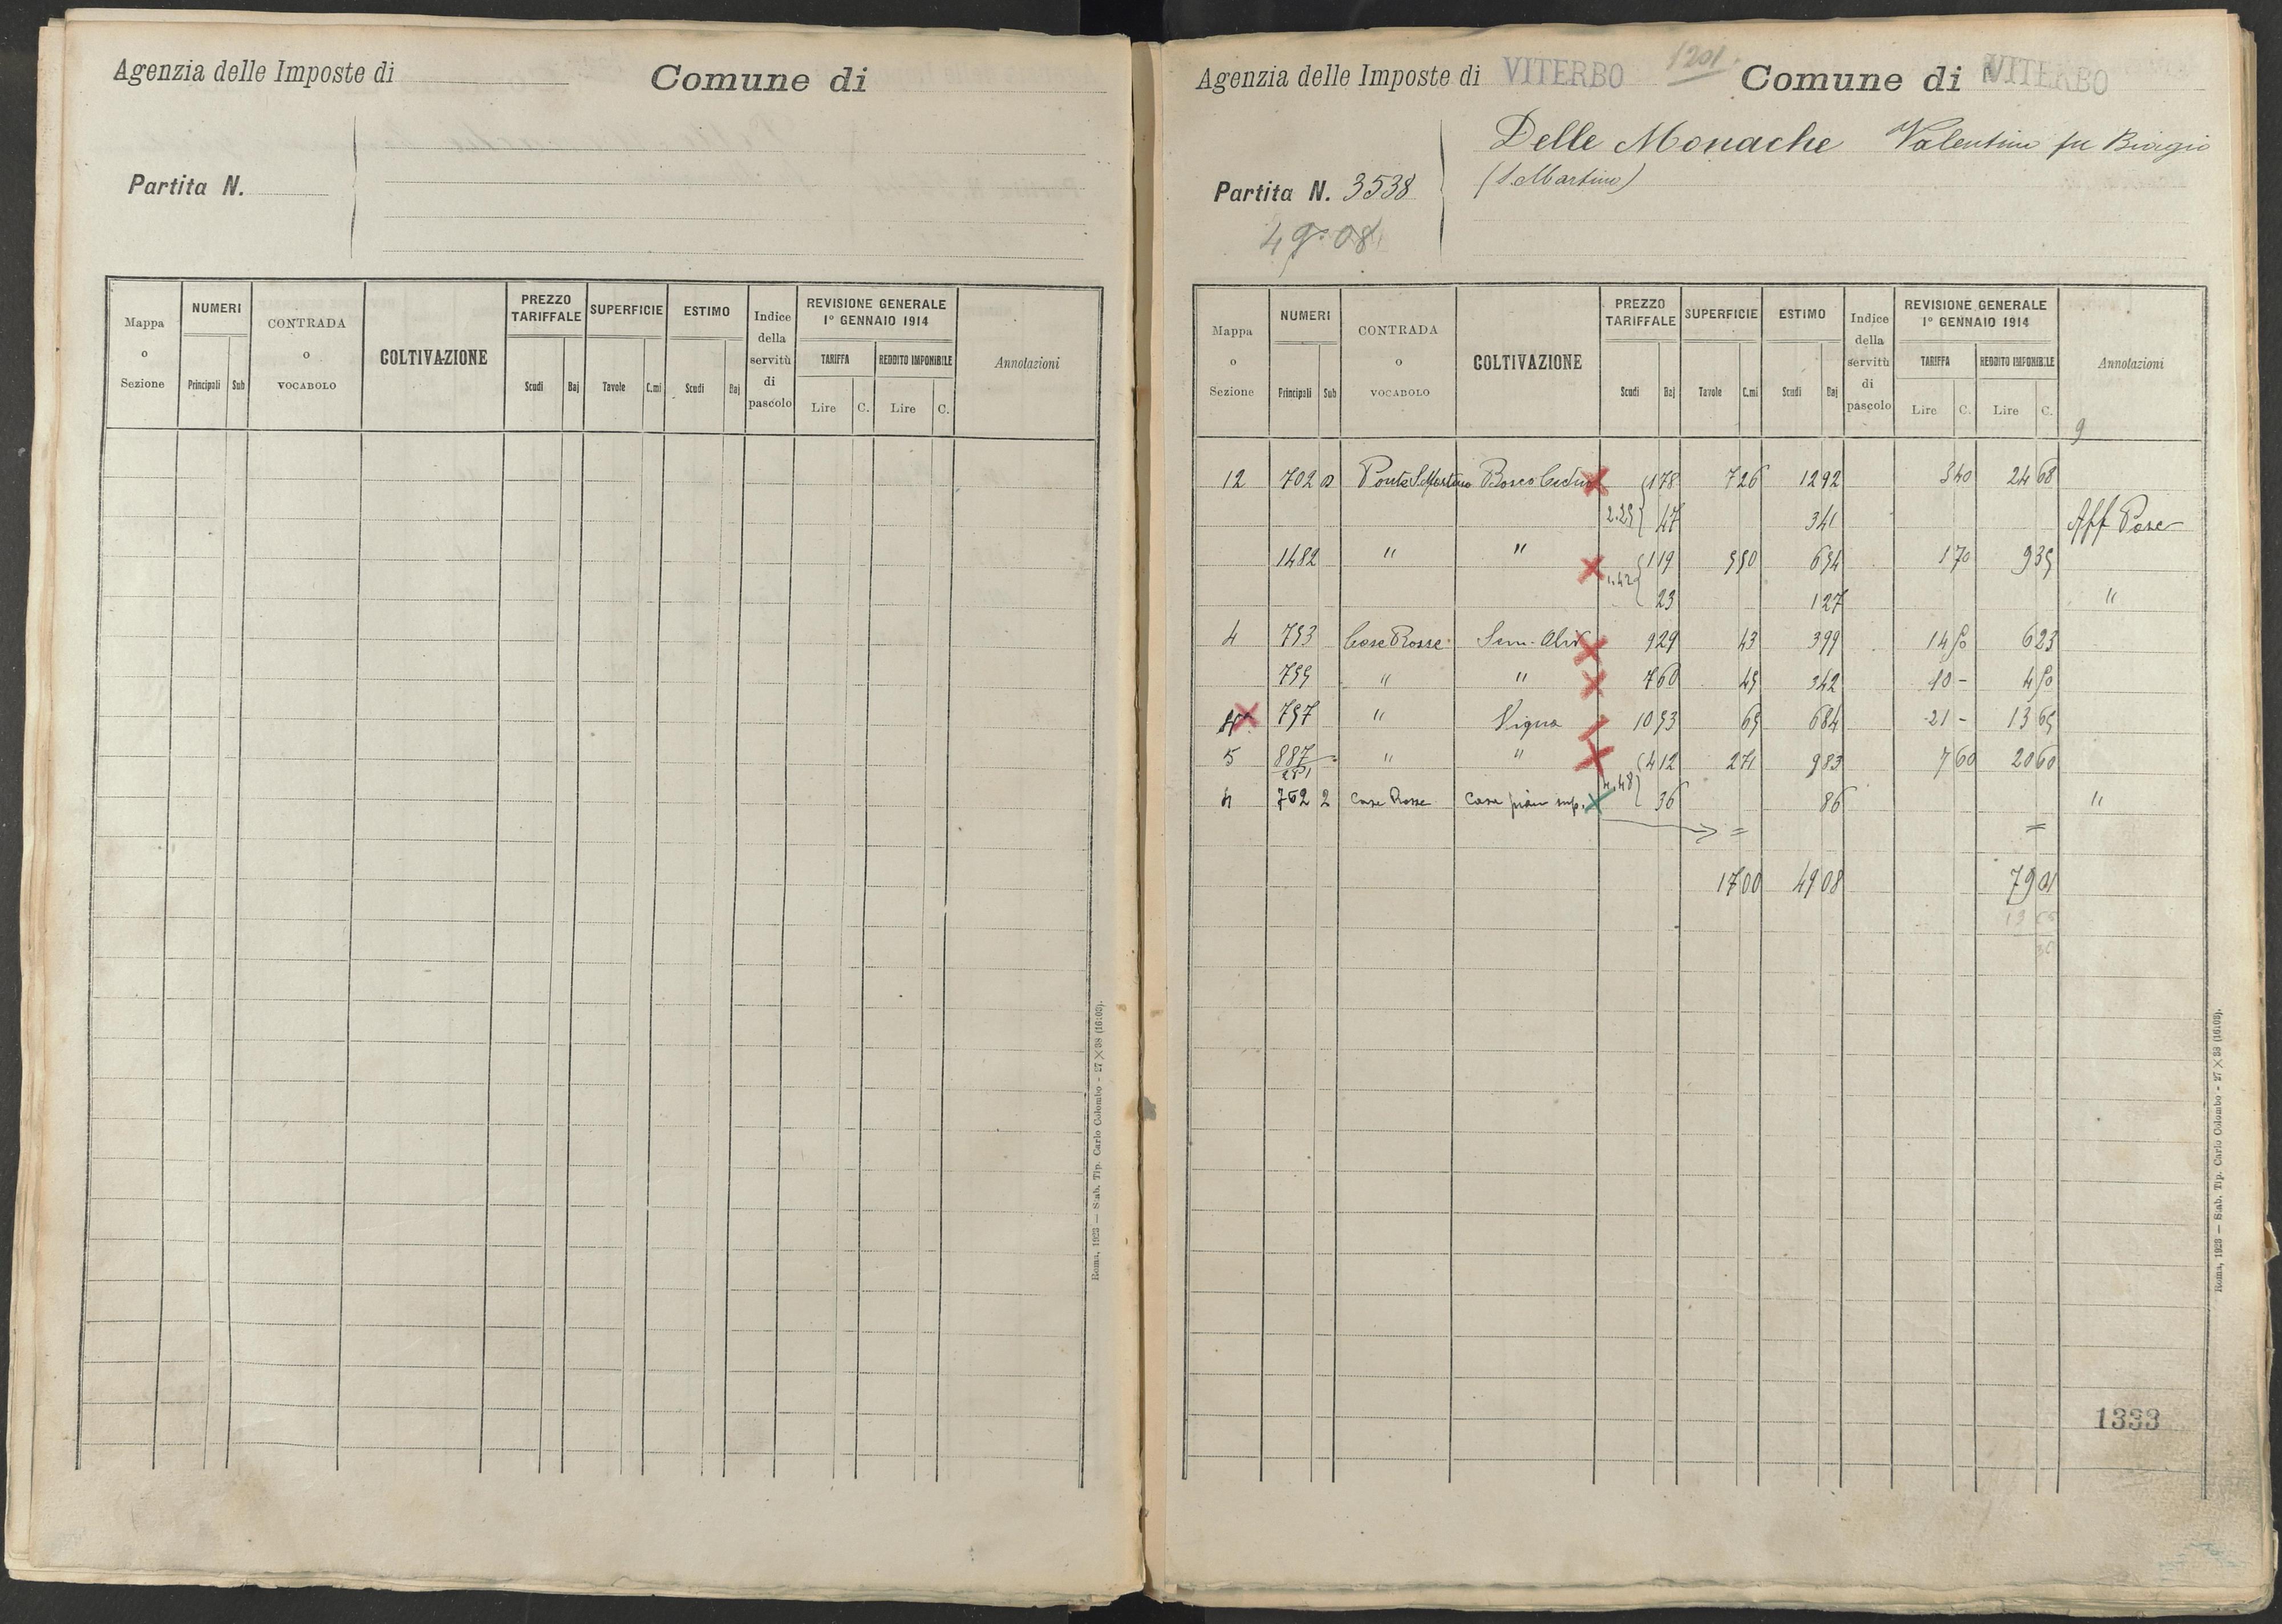 Agenzia delle Imposte di
Comune di
Partita N.
Mappa o Sezione
NUMERI
Principali Sub
CONTRADA o VOCABOLO
COLTIVAZIONE
PREZZO TARIFFALE
Scudi Baj
SUPERFICIE
Tavole C.mi
ESTIMO
Scudi Baj
Indice della servitù di pascolo
REVISIONE GENERALE
1° GENNAIO 1914
TARIFFA REDDITO IMPONIBILE
Lire C. Lire C.
Annotazioni
Roma, 1923 — Stab. Tip. Carlo Colombo - 27×38 (16:03).
Agenzia delle Imposte di VITERBO 1201. Comune di VITERBO
Delle Monache Valentino fu Biagio
Partita N. 3538 (S. Martino)
49.08
Mappa o Sezione
NUMERI
Principali Sub
CONTRADA o VOCABOLO
COLTIVAZIONE
PREZZO TARIFFALE
Scudi Baj
SUPERFICIE
Tavole C.mi
ESTIMO
Scudi Baj
Indice della servitù di pascolo
REVISIONE GENERALE
1° GENNAIO 1914
TARIFFA REDDITO IMPONIBILE
Lire C. Lire C.
Annotazioni
9
12 702 Ponte S. Martino Bosco Ceduo 1 78 7 26 12 92 3 40 24 68
2.25 47 3 41 Aff Pasc
1482 " " 1 19 5 50 6 54 1 70 9 35
1.42 23 1 27 "
4 753 Case Rosse Sem. Oliv 9 29 43 3 99 14 50 6 23
755 " " 7 60 45 3 42 10 - 4 50
757 " Vigna 10 53 65 6 84 21 - 13 65
5 887 " " 4 12 2 71 9 83 7 60 20 60
4 762 2 Case Rosse Casa piano sup. 4.48 36 86 "
= =
17 00 49 08 79 01
1333
Roma, 1923 — Stab. Tip. Carlo Colombo - 27×38 (16:03).